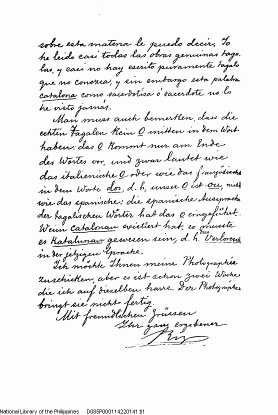 sobre esta materia le puedo decir. Yo
he leido casi todas las obras genuinas taga-
las, y casi no hay escrito puramente tagalo
que no conozca, y sin embargo esta palabra
catalona como sacerdotisa ó sacerdote no lo
he visto jamás.
Man muss auch bemerken, dass die
echten Tagalen kein O mitten in dem Wort
haben. das O kommt nur am Ende
des Wortes vor, und zwar lautet wie
das italienische O oder wie das französische
in dem Worte dos, d. h. unser O ist ou, nicht
wie das spanische; die spanische Aussprache
der tagalischen Wörter hat das O eingeführt.
Wenn Catalonan existiert hat, so musste
es Katalunan gewesen sein, d. h. Verloren
in der jetzigen Sprache.
Ich möchte Ihnen meine Photographie
zuschicken, aber es ist schon zwei Woche
die ich auf dieselben harre. Der Photograph
bringt sie nicht fertig.
Mit freundlichen Grüssen
Ihr ganz ergebener
Rizal
National Library of the Philippines